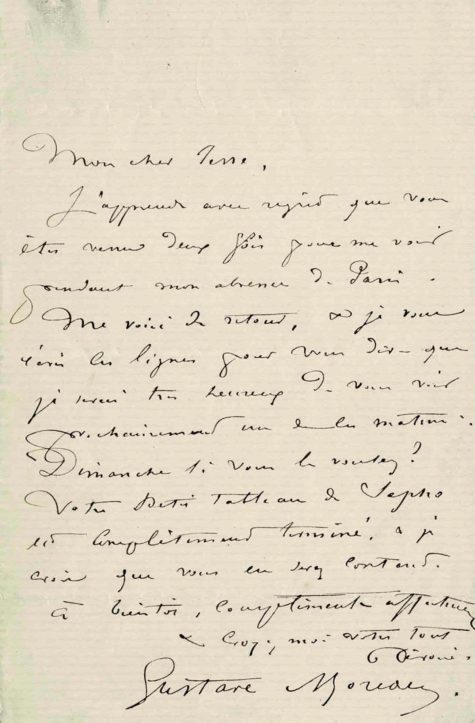 Mon cher
J'apprends avec regret que vous
êtes venu deux fois pour me voir
pendant mon absence de Paris.
Me voici de retour, & je vous
écris ces lignes pour vous dire que
je serai très heureux de vous voir
prochainement un de ces matins.
Dimanche si vous le voulez?
Votre petit tableau de Sapho
est complètement terminé, & je
crois que vous en serez content.
à bientôt, compliments affectueux
& croyez moi votre tout
dévoué.
Gustave Moreau